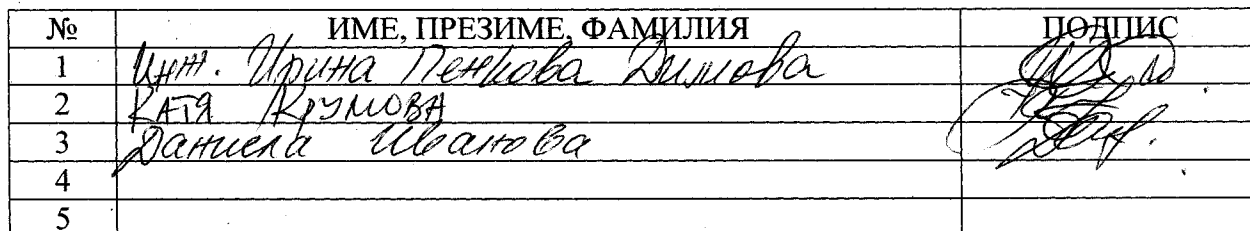 № ИМЕ, ПРЕЗИМЕ, ФАМИЛИЯ ПОДПИС
1 Инж. Ирина Пенкова Димова
2 КАТЯ КРУМОВА
3 Даниела Иванова
4
5